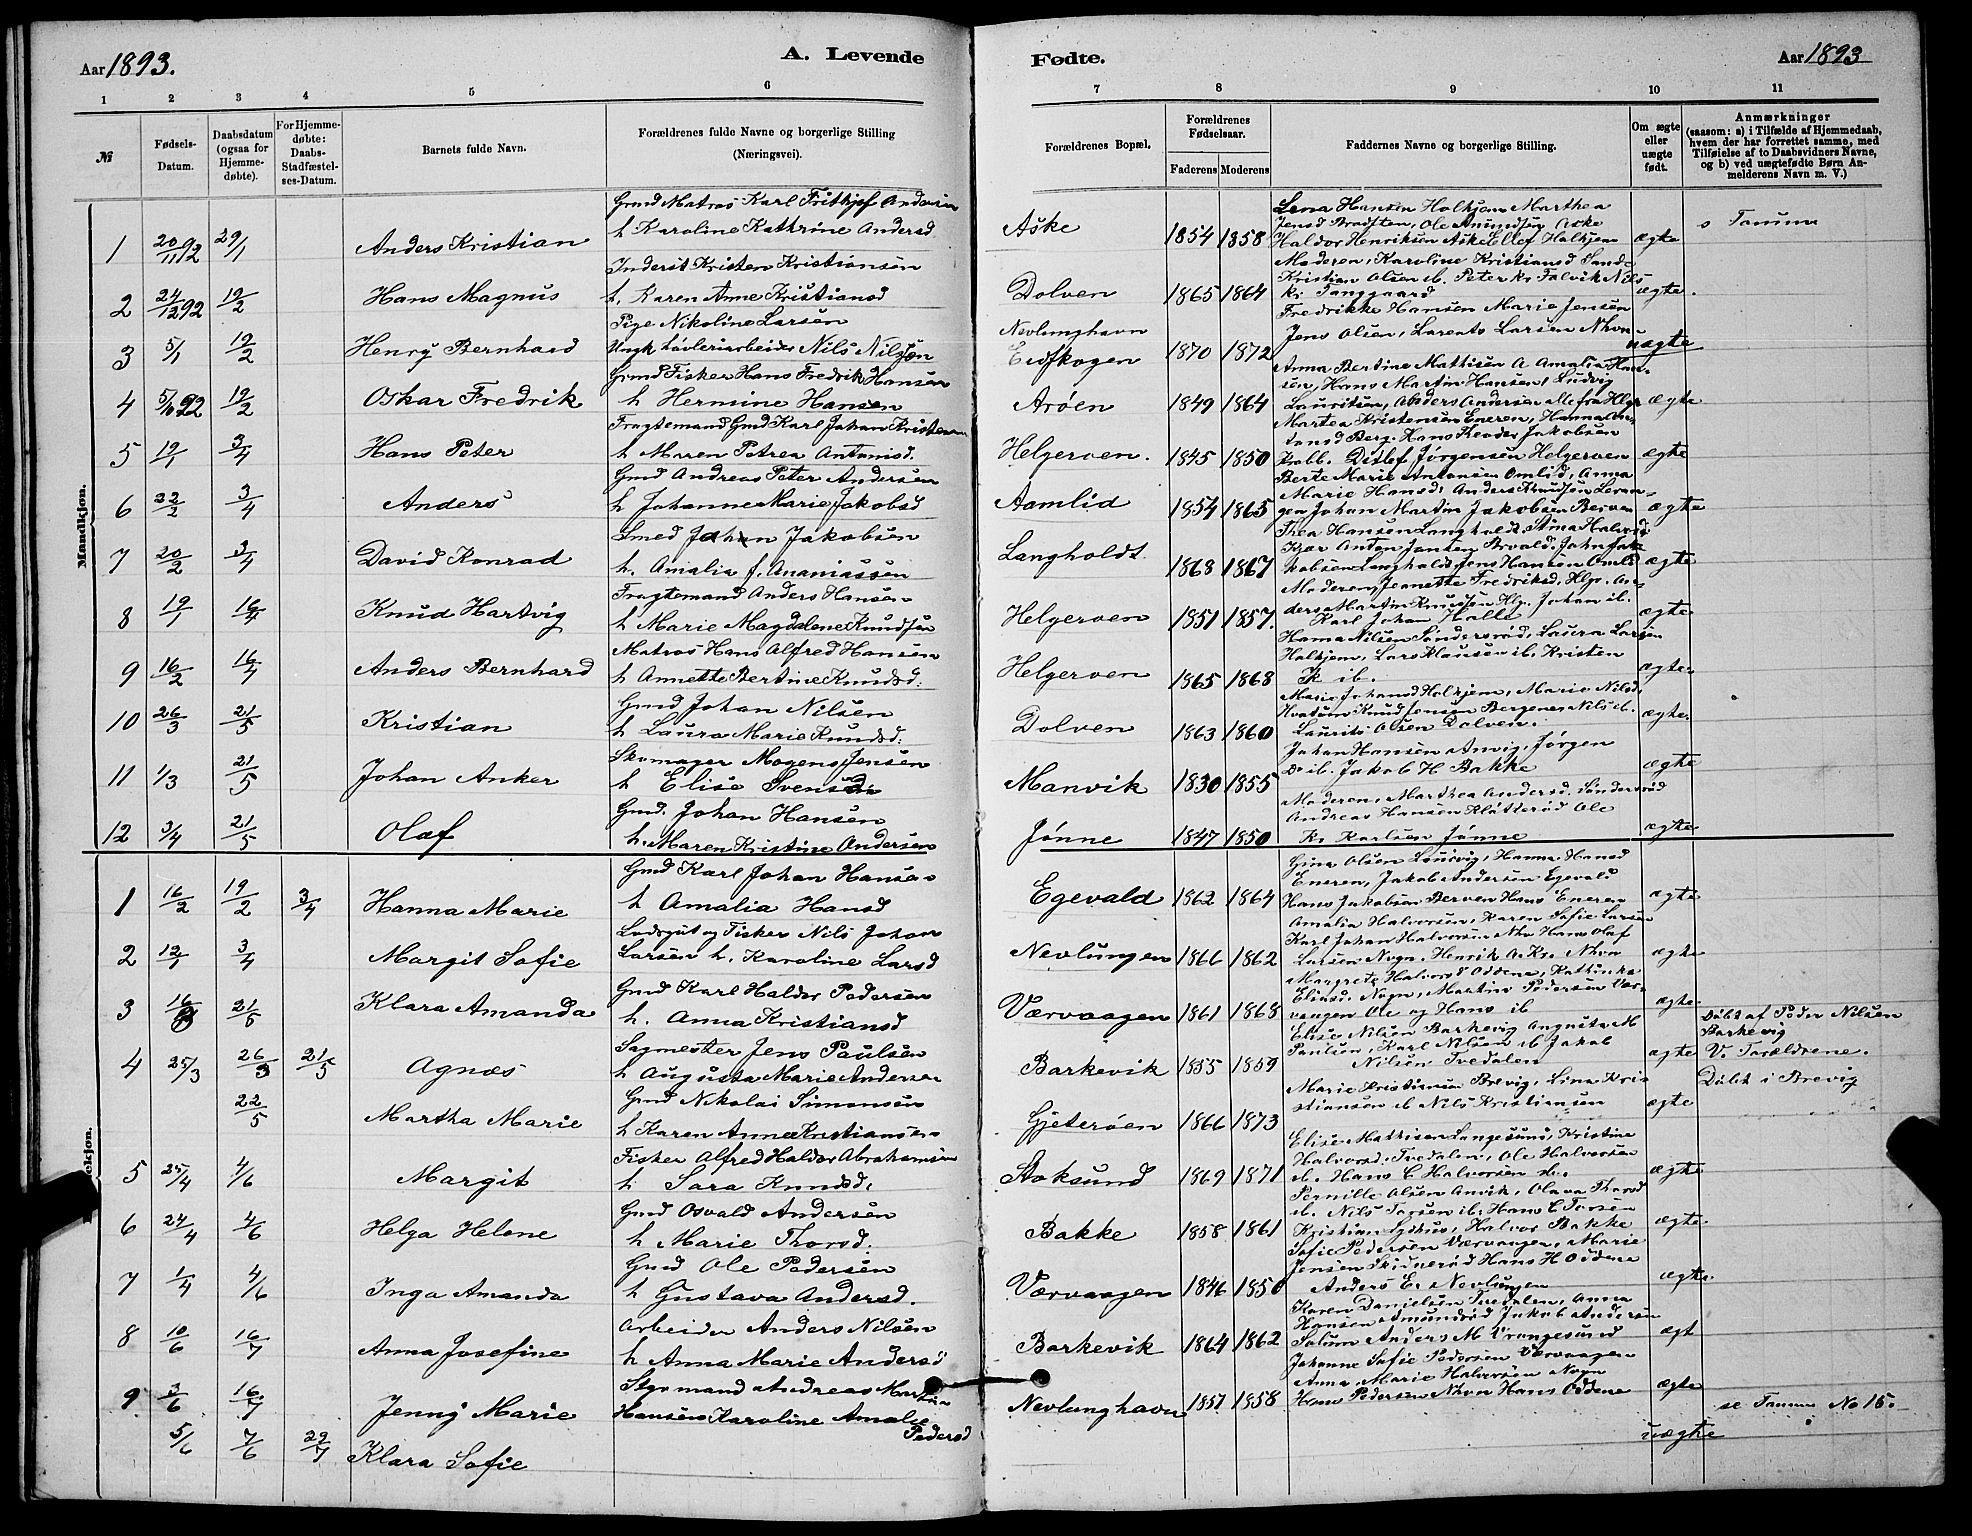 Aar 1893.
A. Levende
1 2 3 4 5 6
№
Fødsels-Datum.
Daabsdatum (ogsaa for Hjemme-døbte).
For Hjemme-døbte: Daabs-Stadfæstel-ses-Datum.
Barnets fulde Navn.
Forældrenes fulde Navne og borgerlige Stilling (Næringsvei).
Mandkjøn.
Gmd Matros Karl Frithjof Andersen
1 20/11 92 29/1 Anders Kristian h Karoline Kathrine Andersd
Inderst Kristen Kristiansen
2 24/12 92 19/2 Hans Magnus h. Karen Anne Kristiansd
Pige Nikoline Larsen
3 5/1 19/2 Henry Bernhard Ungk Nils Nilsen
Gmd Fisker Hans Fredrik Hansen
4 92 19/2 Oskar Fredrik h Hermine Hansen
Fragtemand Gmd Karl Johan Kristensen
5 19/1 3/4 Hans Peter h Maren Petrea Antonisd.
Gmd Andreas Peter Andersen
6 22/2 3/4 Anders h Johanne Marie Jakobsd
Smed Johan Jakobsen
7 20/2 3/4 David Konrad h. Amalia f. Ananiassen
Fragtemand Anders Hansen
8 19/1 16/4 Knud Hartvig h Marie Magdalene Knudsen
Matros Hans Alfred Hansen
9 16/2 16/4 Anders Bernhard h Annette Bertine Knudsd.
Gmd Johan Nilsen
10 26/3 21/5 Kristian h Laura Marie Knudsd.
Skomager Mogens Jensen
11 1/3 21/5 Johan Anker h Elise Svensen
Gmd. Johan Hansen
12 3/4 21/5 Olaf h. Maren Kristine Andersen
Gmd Karl Johan Hansen
1 16/2 19/2 3/4 Hanna Marie h Amalia Hansd
Lods og Fisker Nils Johan
2 12/1 3/4 Margit Sofie Larsen h. Karoline Larsd
Gmd Karl Haldor Pedersen
3 21/5 Klara Amanda h. Anna Kristiansd
Sagmester Jens Paulsen
4 25/3 26/3 21/5 Agnes h Augusta Marie Andersen
Gmd Nikolai Simonsen
22/5 Martha Marie h Karen Anne Kristiansen
Fisker Alfred Haldor Abrahamsen
5 25/4 4/6 Margit h. Sara Knudsd.
Gmd Osvald Andersen
6 24/4 4/6 Helga Helene h Marie Thorsd.
Gmd Ole Pedersen
7 1/4 4/6 Inga Amanda h Gustava Andersd.
Arbeider Anders Nilsen
8 10/6 16/7 Anna Josefine h Anna Marie Andersd
Styrmand Andreas Martin
9 3/6 16/7 Jenny Marie Hansen Karoline Amalie
Pedersd
5/6 7/6 29/7 Klara Sofie
Fødte.
Aar 1893
7 8 9 10 11
Forældrenes Bopæl.
Forældrenes Fødselsaar.
Faderens Moderens
Faddernes Navne og borgerlige Stilling.
Om ægte eller uægte født.
Anmærkninger
(saasom: a) i Tilfælde af Hjemmedaab, hvem der har forrettet samme, med Tilføielse af to Daabsvidners Navne, og b) ved uægtefødte Børn An-melderens Navn m. V.)
Lena Hansen Halkjem Marthea
Jensd Bradsten, Ole Amundsen Aske s Tanum
Aske 1854 1858 Haldor Henriksen Aske Ellef Halkjem ægte
Moderen, Karoline Kristiansd Sande
Kristian Olsen ib. Peter Kr Falvik Nils
Dolven 1865 1864 Kr. Tanggaard ægte.
Fredrikke Hansen Marie Jensen
Nevlunghavn Jens Olsen, Larents Larsen Nhvn
Eidskogen 1870 1872 uægte
Anna Bertine Mathisen A Amalia Han-
sen, Hans Martin Hansen, Ludvig
Arøen 1849 1864 Lauritsen, Anders Andersen alle fra Hlgr ægte
Martea Kristensen Eneren, Hanna An-
tonsd Berg. Hans Theodor Jakobsen
Helgeroen. 1845 1850 Krabb. Ditlef Jørgensen Helgeroen ægte
Berte Marie Antonsen Omlid, Anna
Marie Hansd. Anders Knudsen Levan-
Aamlid 1854 1865 gen Johan Martin Jakobsen Berven ægte
Thea Hansen Langholdt, Stina Halvorsd
Kjær Anton Jensen Arvald. John Jak-
Langholdt 1868 1867 kobsen Langholdt Jens Hansen Omlid ægte
Moderen, Jeanette Fredriksd. Hlg. An-
ders Martin Knudsen Hlg. Johan ib.
Helgeroen 1851 1857. Karl Johan Halle ægte
Hanna Nilsen Søndersrød, Laura Larsen
Halkjem, Lars Klausen ib. Kristen
Helgeroen 1865 1868 K ib. ægte.
Marie Johansd Halkjem, Marie Nilsd.
Kvatum Knud Jensen Bergene Nils ib.
Dolven 1863 1860 Laurits Olsen Dolven. ægte.
Johan Hansen Anvig, Jørgen
Manvik 1830 1855 Do ib. Jakob H Bakke ægte
Moderen, Marthea Andersd. Søndersrød
Andreas Hansen Klåtterød Ole
Jønne 1847 1850 Kr. Karlsen Jønne ægte
Gina Olsen Laurvig, Hanna Hansd
Eneren, Jakob Andersen Egevald
Egevald 1862 1864 Hans Jakobsen Berven Hans Eneren ægte
Amalia Halvorsen, Karen Sofie Larsen
Karl Johan Halvorsen Nhv Hans Olaf
Nevlungen 1866 1862 Larsen Nvgn. Henrik A. Kr. Nhvn ægte
Margrete Halvorsd Oddene, Kathinka
Eliasd. Nvgn, Martin Pedersen Vær-
Værvaagen 1861 1868 vaagen Ole og Hans ib ægte.
Elise Nilsen Barkevig Augusta M Døbt af Peder Nilsen
Paulsen, Karl Nilsen ib Jakob Barkevig
Barkevik 1855 1859 Nilsen Tvedalen ægte V. Forældrene.
Marie Kristiansen Brevig, Lina Kris- Døbt i Brevig
stiansen ib Nils Kristiansen
Gjeterøen 1866 1873 ægte
Elise Mathisen Langesund, Kristine
Halvorsd. Tvedalen, Ole Halvorsen
Stoksund 1869 1871 ib. Hans C Halvorsen ib. ægte
Pernille Olsen Anvik, Olava Thorsd
ib. Nils Torsen ib. Hans C Torsen
Bakke 1858 1861 Kristian Lyshus, Halvor Bakke ægte.
Sofie Pedersen Værvaagen, Marie
Jensen Skisnerød Hans H Oddene
Værvaagen 1846 1850 Anders E. Nevlungen ægte.
Karen Danielsen Tvedalen, Anna
Hansen Amundrød Jakob Andersen
Barkevik 1864 1862 Salum Anders M Vrangesund ægt
Johanne Sofie Pedersen Værvaagen
Anna Marie Halvorsen Nvgn
Nevlunghavn 1857 1858 Hans Pedersen Nhvn Hans Oddene ægte
se Tanum No 15.
uægte